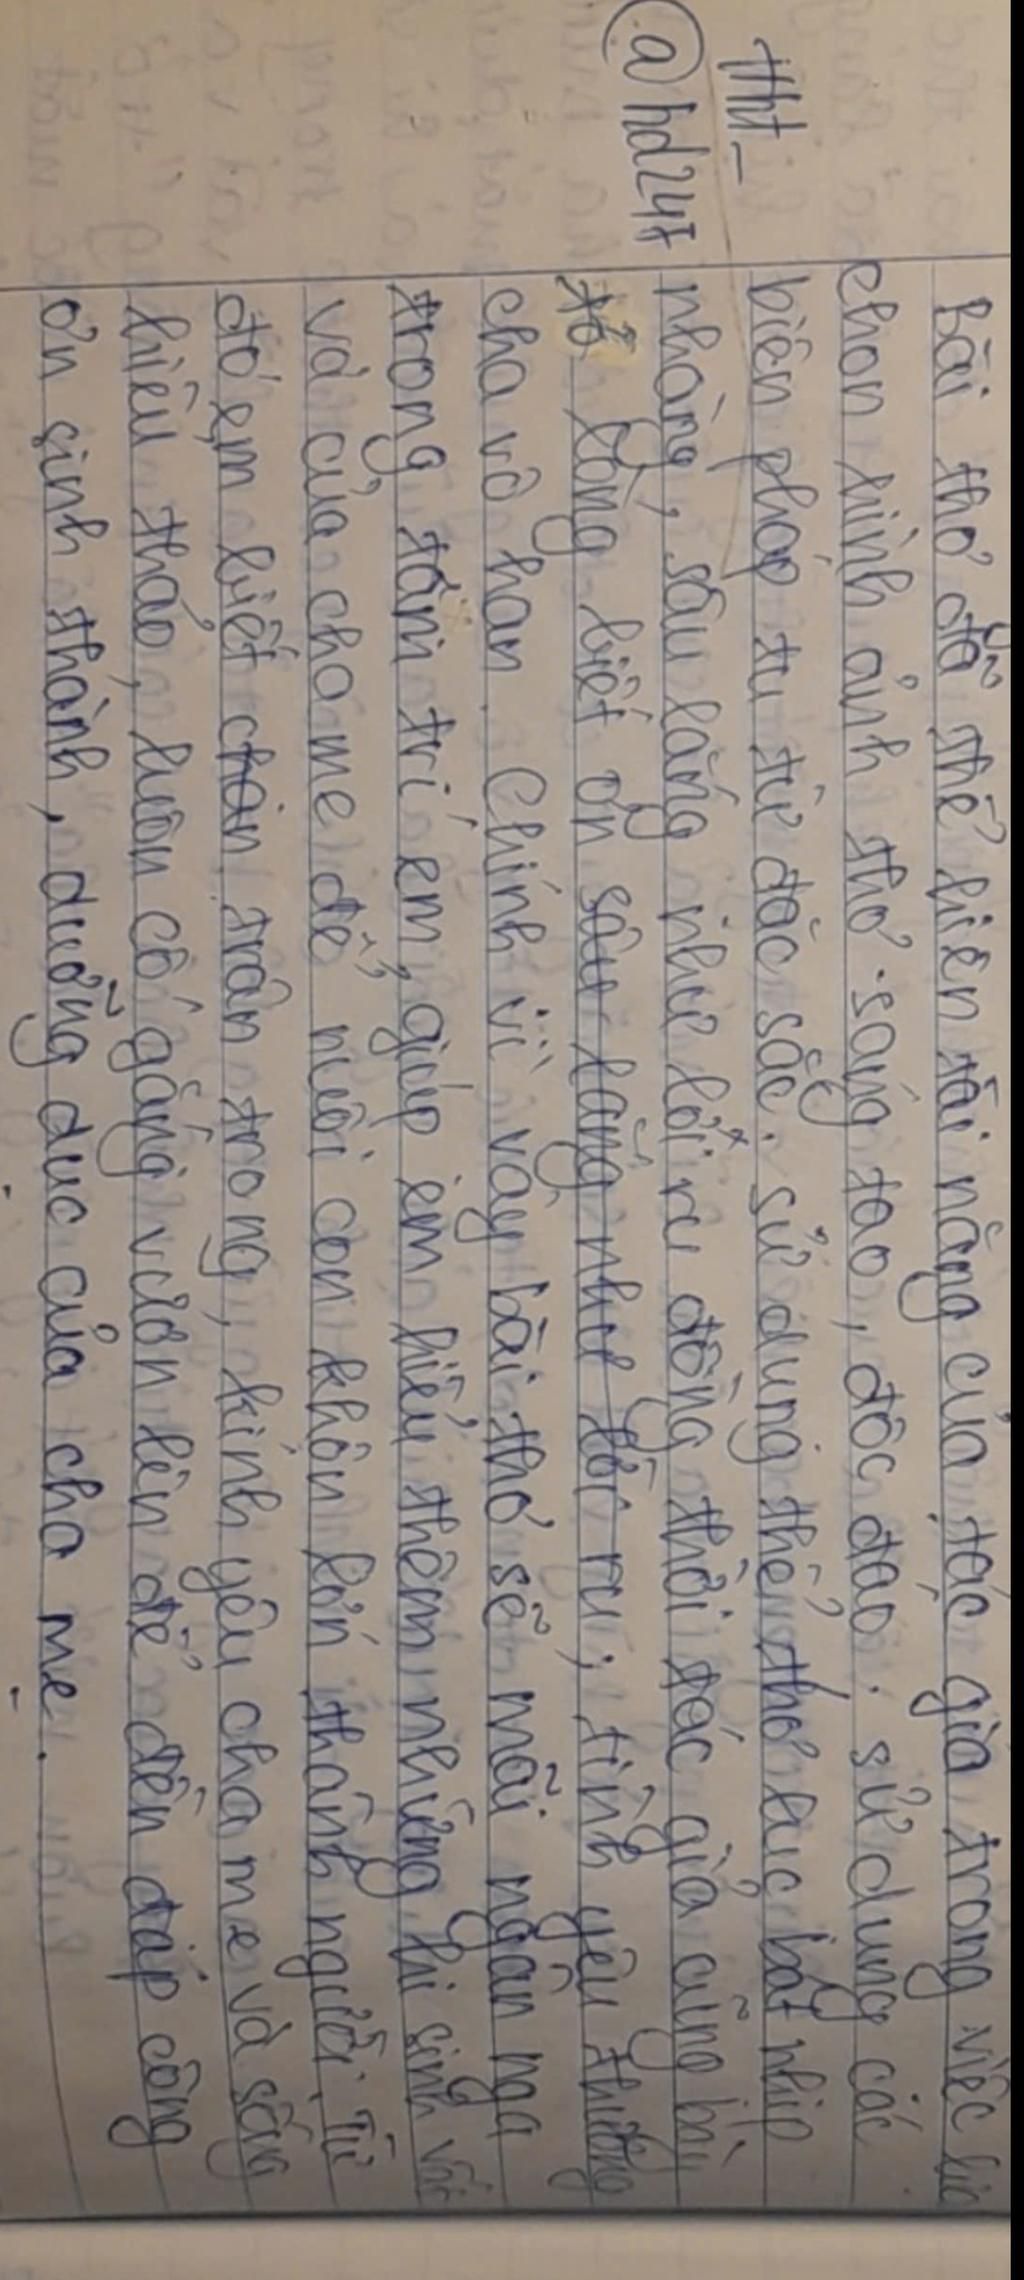 Tht_
@hd247
Bài thơ đã thể hiện tài năng của tác giả trong việc lựa
chọn hình ảnh thơ sáng tạo, độc đáo. sử dụng các
biện pháp tu từ đặc sắc. sử dụng thể thơ lục bát nhịp
nhàng, sâu lắng như lời ru đồng thời tác giả cũng bày
tỏ lòng biết ơn sâu lắng như lời ru, tình yêu thương
cha vô hạn. Chính vì vậy bài thơ sẽ mãi ngân nga
trong tâm trí em, giúp em hiểu thêm những hi sinh vất
vả của cha mẹ để nuôi con khôn lớn thành người. Từ
đó em biết chân trân trọng, kính yêu cha mẹ và sống
hiếu thảo, luôn cố gắng vươn lên để đền đáp công
ơn sinh thành, dưỡng dục của cha mẹ.